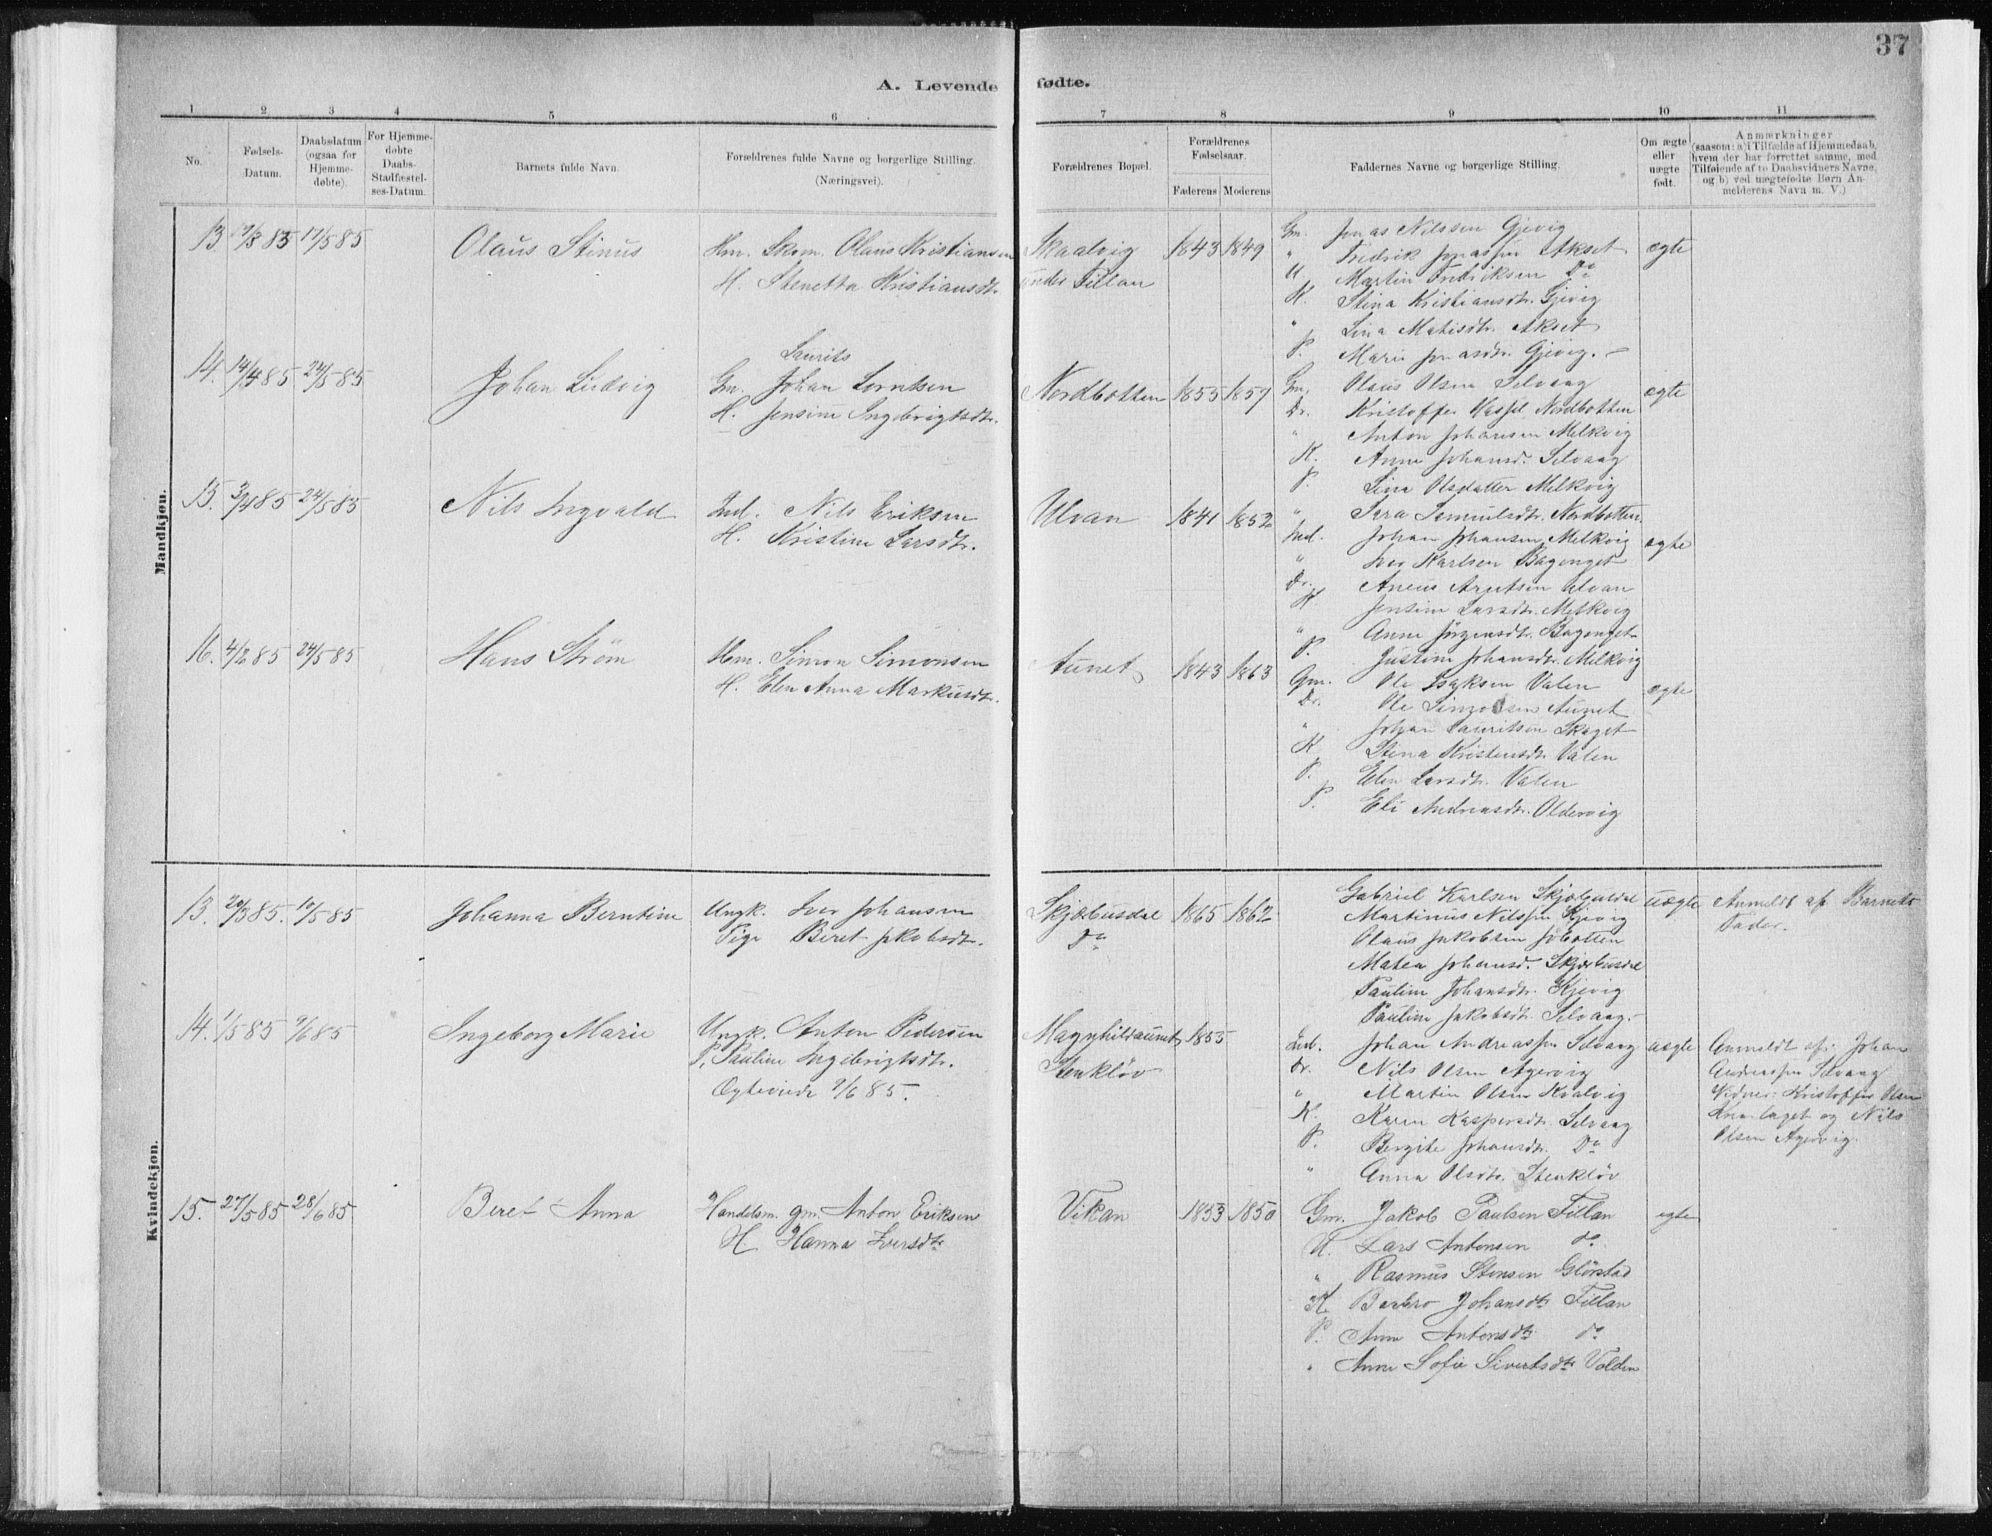 37
A. Levende fødte.
1 2 3 4 5 6 7 8 9 10 11
No.
Fødsels-Datum.
Daabsdatum (ogsaa for Hjemme-døbte).
For Hjemme-døbte Daabs-Stadfæstel-ses-Datum.
Barnets fulde Navn.
Forældrenes fulde Navne og borgerlige Stilling. (Næringsvei).
Forældrenes Bopæl.
Forældrenes Fødselsaar.
Faderens Moderens
Faddernes Navne og borgerlige Stilling.
Om ægte eller uægte født.
Anmærkninger (saasom: a) i Tilfælde af Hjemmedaab, hvem der har forrettet samme, med Tilføiende af to Daabsvidners Navne, og b) ved uægtefødte Børn An-melderens Navn m. V.)
Mandkjøn.
13 17/5 85 Olaus Stinus
Hm. Skom. Olaus Kristiansen
H. Stenetta Kristiansdt.
Skaalvig
under Fillan
1843 1849
Gm. Jonas Nilssen Gjevig
" Fredrik Jonassen Akset
U. Martin Fredriksen Do
K. Stina Kristiansdtr. Gjevig
" Lina Matisdtr. Akset
P. Marie Jonasdtr. Gjevig.
ægte
14. 14/4 85 24/5 85 Johan Ludvig
Laurits
Gm. Johan Lorntsen
H. Jensine Ingebrigtsdtr.
Nordbotten 1855 1857
Gm. Olaus Olsen Selvaag
Dr. Kristoffer Nordbotten
" Anton Johansen Melkvig
K. Anne Johansd. Selvaag
P. Lina Olsdatter Melkvig
" Sara Samuelsdtr. Nordbotten
ægte
15. 3/4 85 24/5 85 Nils Ingvald
Ind. Nils Eriksen
H. Kristine Larsdtr.
Ulvan 1841 1852
Ind. Johan Johansen Melkvig
" Iver Karlsen Bagenget
Dr. Aneus Arntsen Ulvan
K. Jensine Larsdtr. Melkvig
" Anne Jørgensdtr. Bagenget
P. Justine Johansdtr. Melkvig
ægte
16. 4/2 85 24/5 85 Hans Strøm
Hm. Simon Simonsen
H. Elen Anna Markusdtr.
Aunet 1843 1863
Gm. Ole Isaksen Valen
Dr. Ole Simonsen Aunet
" Johan Lauritsen Skaget
K. Stina Kristensdtr. Valen
P. Elen Larsdtr. Valen
P. Eli Andreasdtr. Oldervig
ægte
Kvindekjøn.
13. 20/3 85. 10/5 85 Johanna Berntine
Ungk. Iver Johansen
Pige Beret Jakobsdtr.
Skjærbusdal
Do
1865 1862
Gabriel Karlsen Skjærbusdal
Martinus Nilssen Kjevig
Olaus Jakobsen Jøbotten
Matea Johansd. Skjærbusdal
Pauline Johansdtr. Kjevig
Pauline Jakobsdtr. Selvaag.
uægte
Anmeldt af Barnets
Fader.
14. 1/5 85 9/6 85 Ingeborg Marie
Ungk. Anton Pedersen
P. Pauline Ingebrigtsdtr.
Ægteviede 9/6 85.
Magnhildaunet
Stenkløv
1855
Ind. Johan Andreassen Selvaag
Dr. Nils Olsen Agervig
" Martin Olsen Kvalvig
K. Karen Kaspersdtr. Selvaag
P. Bergite Johansdtr. Do
" Anna Olsdtr. Stenkløv
uægte
Anmeldt af: Johan
Andreassen Selvaag
Vidner: Kristoffer Olsen
og Nils
Olsen Agervig.
15. 27/5 85 28/6 85 Beret Anna
Handelsm. gm. Anton Eriksen
H. Hanna Iversdtr
Vikan 1853 1850
Gm. Jakob Paulsen Fillan
U. Lars Antonsen do
" Rasmus Stensen Glørstad
K. Barbro Johansdtr Fillan
P. Anne Antonsdtr do
" Anne Sofie Sivertsdtr Volden
ægte